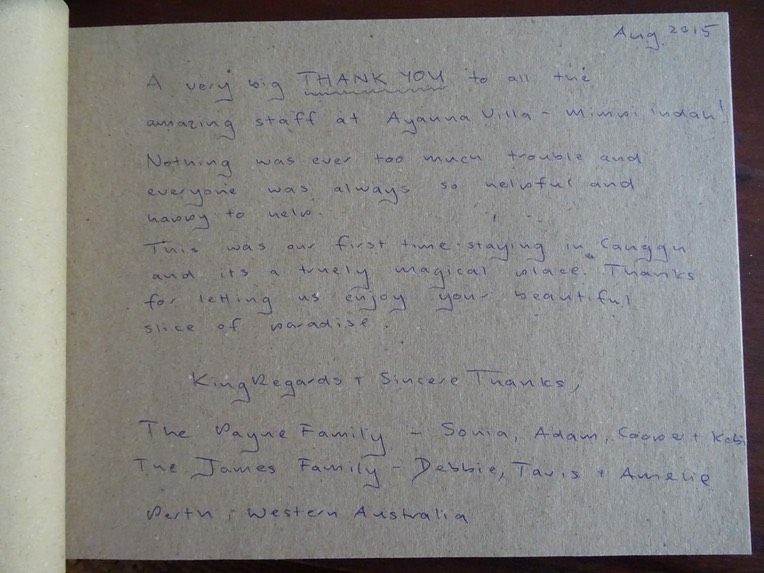 Aug 2015
A very big THANK YOU to all the
amazing staff at Ayanna Villa - Mimpi indah!
Nothing was ever too much trouble and
everyone was always so helpful and
happy to help.
This was our first time staying in Canggu
and its a truely magical place. Thanks
for letting us enjoy your beautiful
slice of paradise.
King Regards + Sincere Thanks,
The Payne Family - Sonia, Adam, Cooper + Kobi
The James Family - Debbie, Tavis + Amelie
Perth, Western Australia